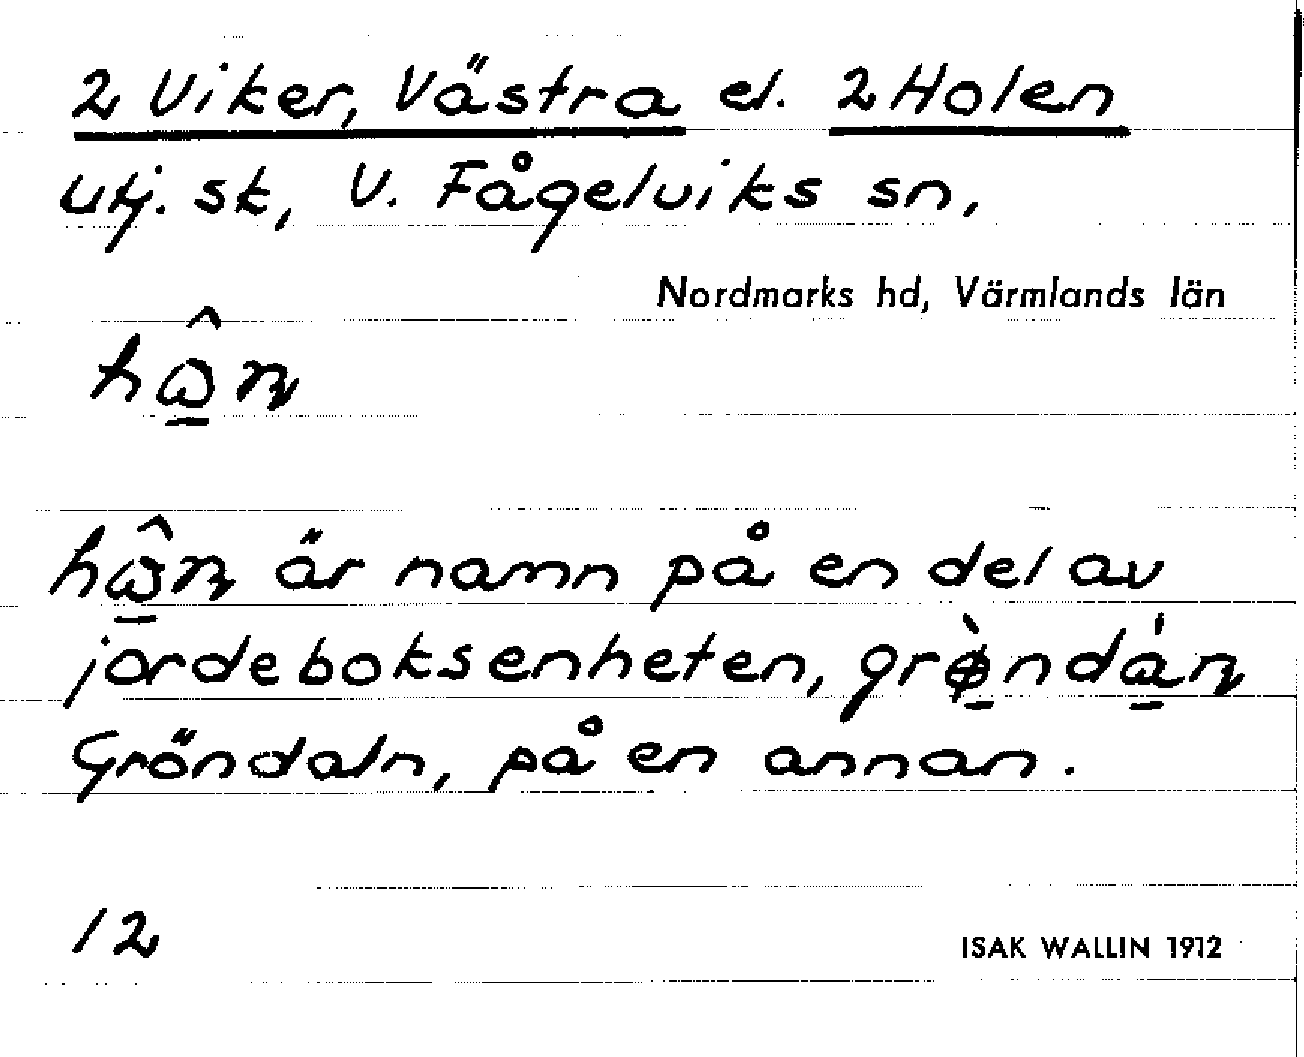 2 Viker, Västra el. 2 Holen
utj. sk, V. Fågelviks sn,
Nordmarks hd, Värmlands län
är namn på en del av
jordeboksenheten,
Gröndaln, på en annan.
12
ISAK WALLIN 1912